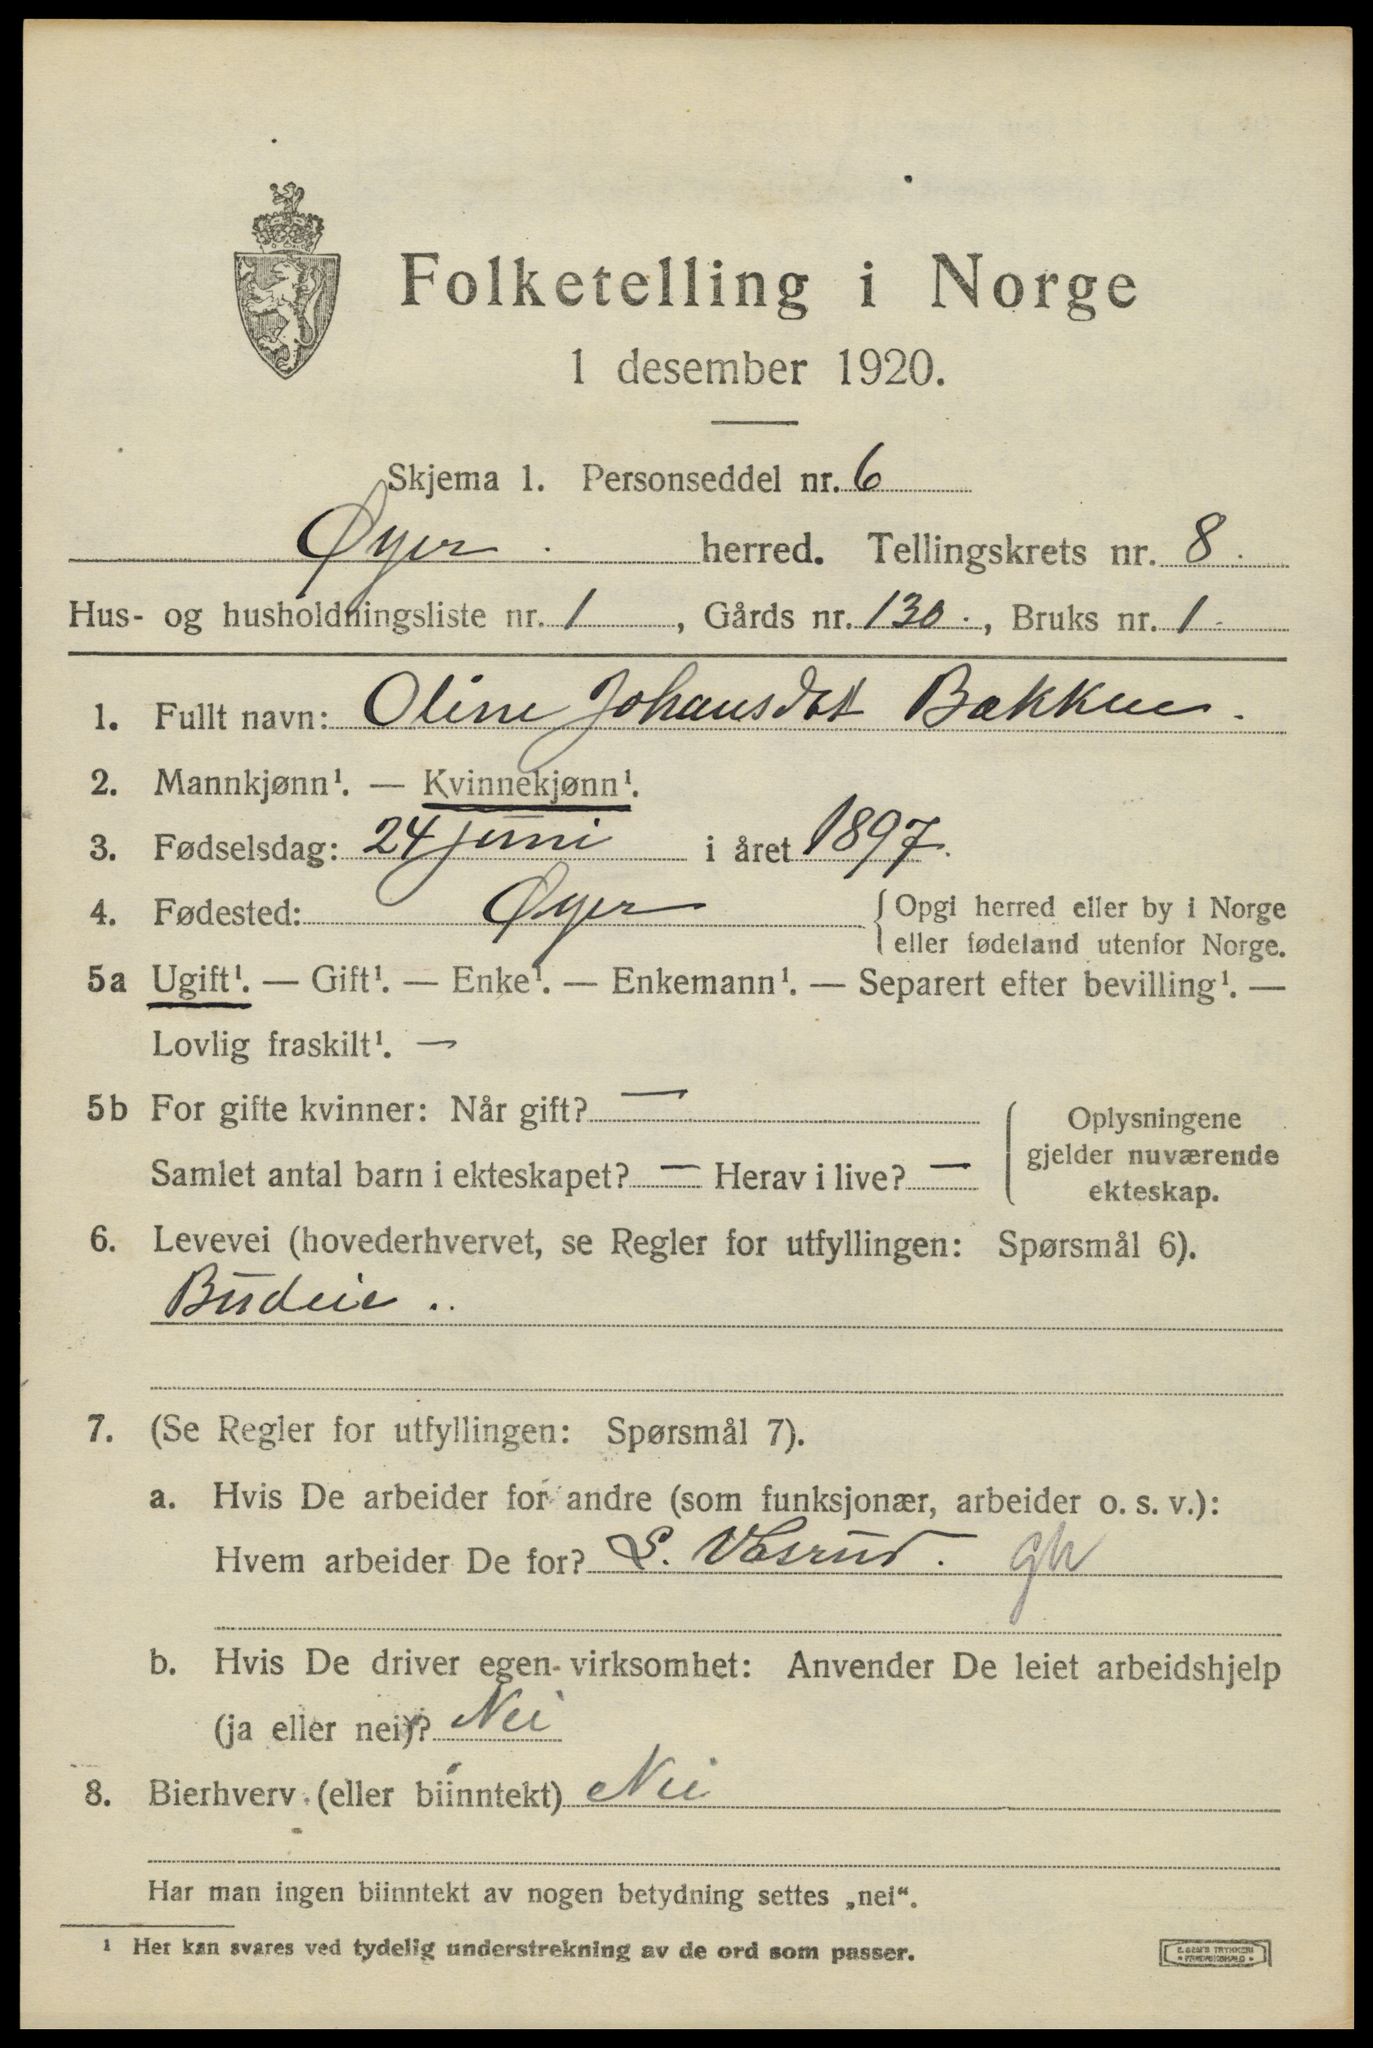 Folketelling i Norge
1 desember 1920.
Skjema 1. Personseddel nr. 6
Øyer. herred. Tellingskrets nr. 8.
Hus- og husholdningsliste nr. 1, Gårds nr. 130., Bruks nr. 1.
1. Fullt navn: Oline Johansdat Bakken.
2. Mannkjønn¹. — Kvinnekjønn¹.
3. Fødselsdag: 24 juni i året 1897.
4. Fødested: Øyer { Opgi herred eller by i Norge
eller fødeland utenfor Norge.
5a Ugift¹. — Gift¹. — Enke¹. — Enkemann¹. — Separert efter bevilling¹. —
Lovlig fraskilt¹. —
5b For gifte kvinner: Når gift? —
Samlet antal barn i ekteskapet? — Herav i live? —
Oplysningene
gjelder nuværende
ekteskap.
6. Levevei (hovederhvervet, se Regler for utfyllingen: Spørsmål 6).
Budeie ..
7. (Se Regler for utfyllingen: Spørsmål 7).
a. Hvis De arbeider for andre (som funksjonær, arbeider o. s. v.):
Hvem arbeider De for? S. Vasrud. gh
b. Hvis De driver egen virksomhet: Anvender De leiet arbeidshjelp
(ja eller nei)? Nei
8. Bierhverv (eller biinntekt) Nei
Har man ingen biinntekt av nogen betydning settes „nei“.
¹ Her kan svares ved tydelig understrekning av de ord som passer.